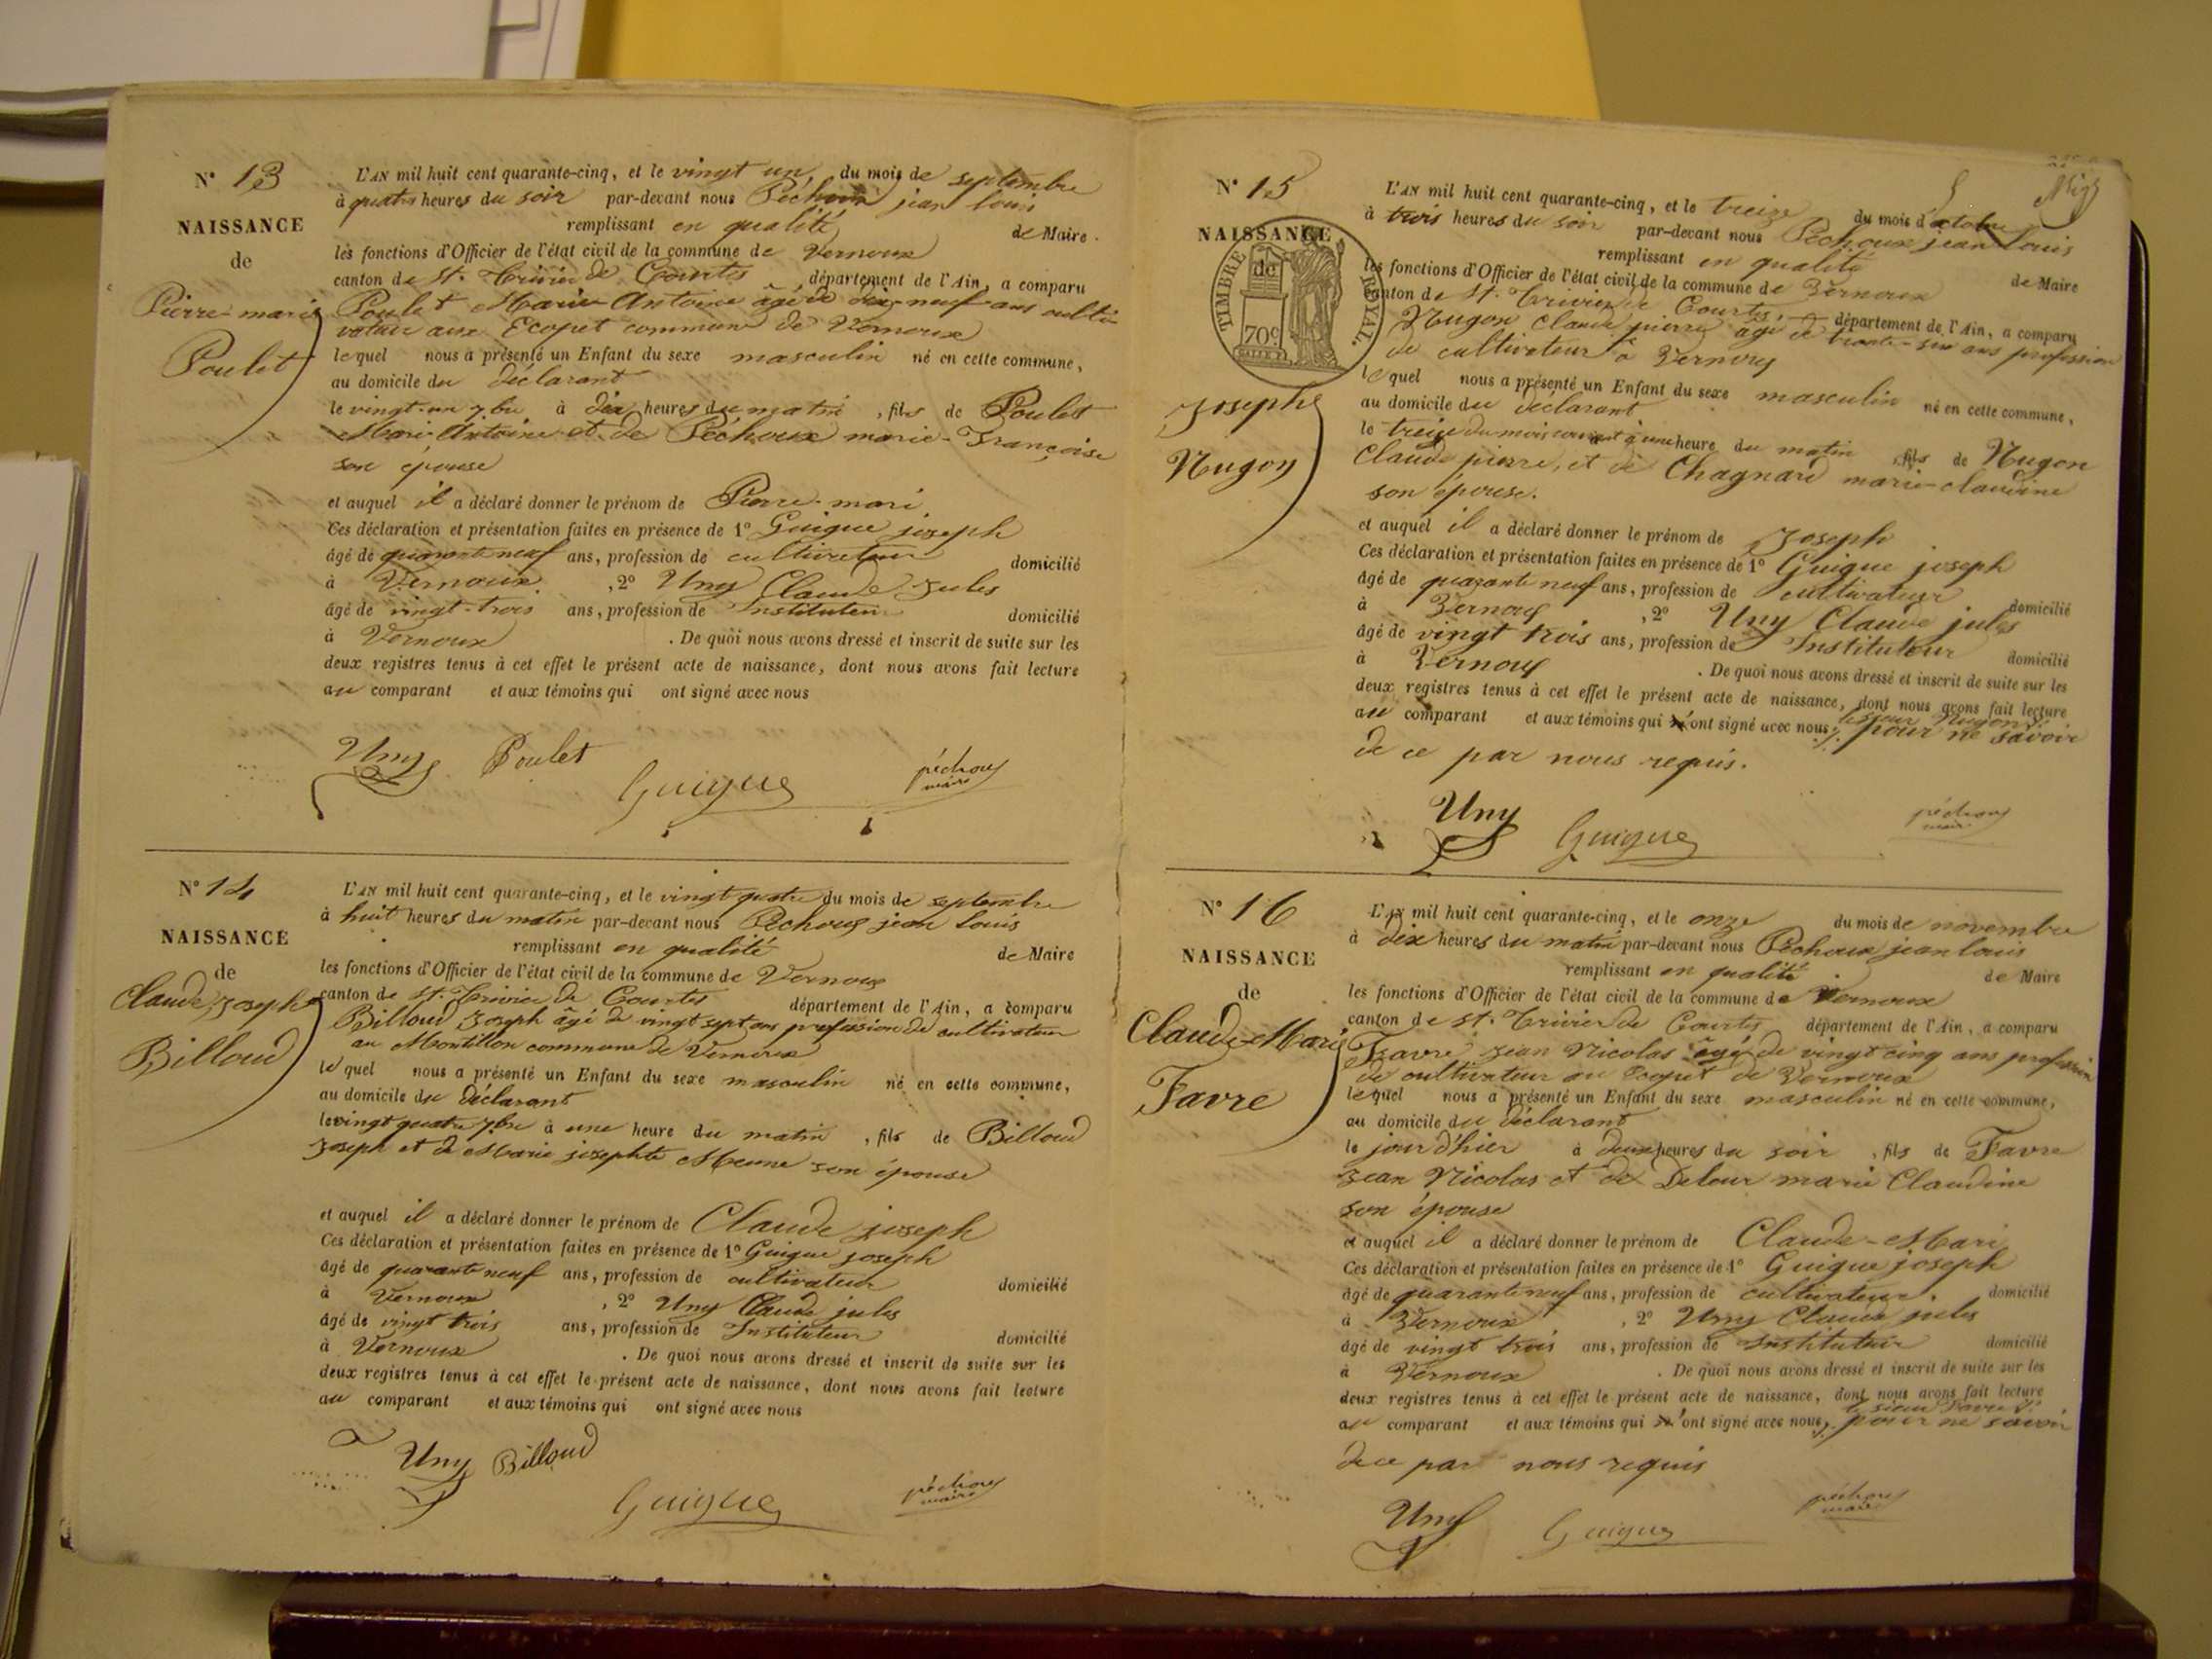 N° 13
NAISSANCE
de
Pierre-marie
Poulet
L'AN mil huit cent quarante-cinq, et le vingt un du mois de septembre
à quatre heures du soir par-devant nous Péchoux jean louis
remplissant en qualité de Maire
les fonctions d'Officier de l'état civil de la commune de Vernoux
canton de St. Trivier de Courtes département de l'Ain, a comparu
Poulet Marie Antoine âgé de dix-neuf ans culti-
vateur aux Ecopet commune de Vernoux
lequel nous a présenté un Enfant du sexe masculin né en cette commune,
au domicile du déclarant
le vingt-un 7bre à dix heures du matin, fils de Poulet
Mari-Antoine et de Péchoux marie-Françoise
son épouse
et auquel il a déclaré donner le prénom de Pierre-mari
Ces déclaration et présentation faites en présence de 1° Guigue joseph
âgé de quarante neuf ans, profession de cultivateur domicilié
à Vernoux, 2° Uny Claude Jules
âgé de vingt-trois ans, profession de Instituteur domicilié
à Vernoux. De quoi nous avons dressé et inscrit de suite sur les
deux registres tenus à cet effet le présent acte de naissance, dont nous avons fait lecture
au comparant et aux témoins qui ont signé avec nous
Uny Poulet Guigue péchoux
maire
N° 14
NAISSANCE
de
Claude, Joseph
Billoud
L'AN mil huit cent quarante-cinq, et le vingt quatre du mois de septembre
à huit heures du matin par-devant nous Péchoux jean louis
remplissant en qualité de Maire
les fonctions d'Officier de l'état civil de la commune de Vernoux
canton de St. Trivier de Courtes département de l'Ain, a comparu
Billoud Joseph âgé de vingt sept ans profession de cultivateur
au Montillon commune de Vernoux
lequel nous a présenté un Enfant du sexe masculin né en cette commune,
au domicile du déclarant
le vingt quatre 7bre à une heure du matin, fils de Billoud
Joseph et de Marie josephte son épouse
et auquel il a déclaré donner le prénom de Claude joseph
Ces déclaration et présentation faites en présence de 1° Guigue joseph
âgé de quarante neuf ans, profession de cultivateur domicilié
à Vernoux, 2° Uny Claude jules
âgé de vingt trois ans, profession de Instituteur domicilié
à Vernoux. De quoi nous avons dressé et inscrit de suite sur les
deux registres tenus à cet effet le présent acte de naissance, dont nous avons fait lecture
au comparant et aux témoins qui ont signé avec nous
Uny Billoud
Guigue péchoux
maire
N° 15
NAISSANCE
de
TIMBRE ROYAL.
70c
Joseph
Nugon
L'AN mil huit cent quarante-cinq, et le treize du mois d'octobre
à trois heures du soir par-devant nous Péchoux jean louis
remplissant en qualité de Maire
les fonctions d'Officier de l'état civil de la commune de Vernoux
canton de St. Trivier de Courtes, département de l'Ain, a comparu
Nugon Claude pierre âgé de trente-six ans profession
de cultivateur à Vernoux
lequel nous a présenté un Enfant du sexe masculin né en cette commune,
au domicile du déclarant
le treize du mois courant à une heure du matin, fils de Nugon
Claude pierre, et de Chagnard marie-claudine
son épouse.
et auquel il a déclaré donner le prénom de Joseph
Ces déclaration et présentation faites en présence de 1° Guigue joseph
âgé de quarante neuf ans, profession de cultivateur domicilié
à Vernoux, 2° Uny Claude jules
âgé de vingt trois ans, profession de Instituteur domicilié
à Vernoux. De quoi nous avons dressé et inscrit de suite sur les
deux registres tenus à cet effet le présent acte de naissance, dont nous avons fait lecture
le sieur Nugon
au comparant et aux témoins qui ont signé avec nous, pour ne savoir
de ce par nous requis.
Uny Guigue péchoux
maire
N° 16
NAISSANCE
de
Claude-Mari
Favre
L'AN mil huit cent quarante-cinq, et le onze du mois de novembre
à dix heures du matin par-devant nous Péchoux jean louis
remplissant en qualité de Maire
les fonctions d'Officier de l'état civil de la commune de Vernoux
canton de St. Trivier de Courtes département de l'Ain, a comparu
Favre Jean Nicolas âgé de vingt cinq ans profession
de cultivateur au Ecopet de Vernoux
lequel nous a présenté un Enfant du sexe masculin né en cette commune,
au domicile du déclarant
le jour d'hier à deux heures du soir, fils de Favre
Jean Nicolas et de Delour marie Claudine
son épouse
et auquel il a déclaré donner le prénom de Claude-Mari
Ces déclaration et présentation faites en présence de 1° Guigue joseph
âgé de quarante neuf ans, profession de cultivateur. domicilié
à Vernoux, 2° Uny Claude jules
âgé de vingt trois ans, profession de Instituteur domicilié
à Vernoux. De quoi nous avons dressé et inscrit de suite sur les
deux registres tenus à cet effet le présent acte de naissance, dont nous avons fait lecture
le sieur Favre
au comparant et aux témoins qui ont signé avec nous, pour ne savoir
de ce par nous requis
Uny Guigue péchoux
maire